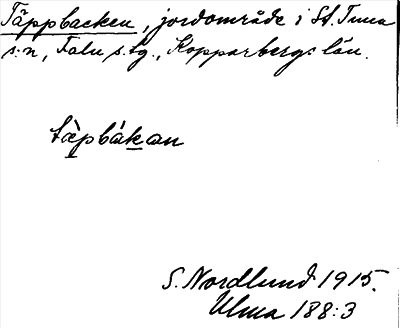 Täppbacken, jordområde i St. Tuna
s:n, Falu s:tg., Kopparbergs län.
tæ̀pbákan
S. Nordlund 1915.
Ulma 188:3